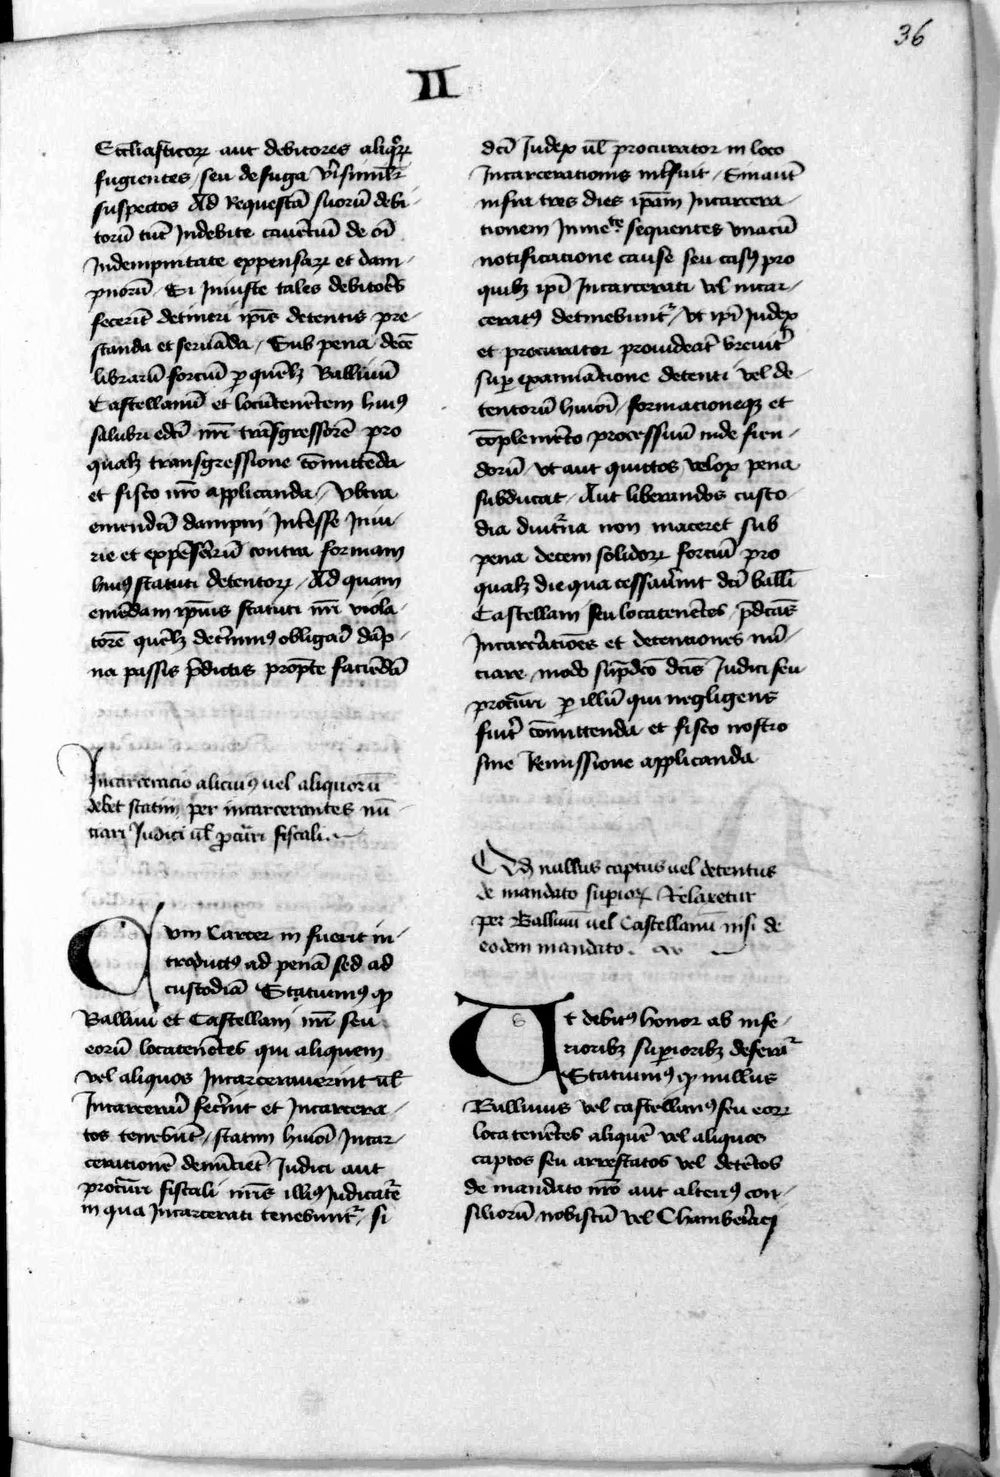 36
II
Eccl̄iasticoꝝ aut debitores aliqͦꝝ
fugientes / seu de fuga v̄isimil̄r
suspectos Ad Requestā suorū debi-
torū tūc Indebite cauētiū de oī
Indempnitate expensaꝝ et dam-
pnorū / Si Iniuste tales debitor̄s
fecerīt detineri ip̄is detentis pre-
standa et seruāda / Sub pena decē
librarū forciū ꝑ quēlꝫ Balliuū
Castellanū et locūtenētem huiꝰ
salubri edc̄i nr̄i trāsgressorē pro
qualꝫ transgressione cōmittēda
et fisco nr̄o applicanda / Vltra
emendc̄i dampni Int̄esse Iniu-
rie et expēsarū contra formam
huiꝰ statuti detentoꝝ / Ad quam
emēdam ip̄ius statuti nr̄i viola-
torē quēlꝫ det̄nimꝰ obligar̄i dāp-
na passis p̄dictis propt̄e faciēdā
Incarceracio aliciuiꝰ uel aliquorū
debet statim per incarcerantes nū-
ciari Iudici ul̄ ꝓcūri fiscali.
Cum Carcer in fuerit in-
troductꝰ ad penā sed ad
custodiā Statuimꝰ ꝙ
Balliui et Castellani nr̄i seu
eorū locatenētes qui aliquem
vel aliquos Incarcerauerint ul̄
Incarcerari fec̄int et Incarcera-
tos tenebūt / statim huiōi Incar-
cerationē denūciēt Iudici aut
procūri fiscali nr̄is illiꝰ Iudicat̄e
in qua Incarcerati tenebunt̄ / si
dc̄i Iudex ul̄ procurator in loco
Incarcerationis int̄fuit / Sin aut̄
infra tres dies ip̄am Incarcera-
tionem Inmeᵗᵉ sequentes vnacū
notificacione cause seu casꝰ pro
quibꝫ ip̄i Incarcerati vel incar-
ceratꝰ detinebunt̄ / Vt ip̄i Iudex
et procurator prouideāt breuit̄
suꝑ exanīatione detenti vel de-
tentorū huiōi formacioneqꝫ et
cōplemēto processuū inde fien-
dorū / Vt aut quittos velox pena
subducat / Aut liberandos custo-
dia diut̄na non maceret sub
pena decem solidoꝝ forciū pro
qualꝫ die qua cessau̅int dc̄i balli
Castellani seu locatenētes p̄dc̄as
Incarc̄atiōes et detentiones nū-
ciare modo sup̄dc̄o dc̄is Iudici seu
procūri ꝑ illū qui negligens
fuit̄ cōmittenda et fisco nostro
sine Remissione applicanda
Qd nullus captus uel detentus
de mandato superioꝝ Relaxetur
per Balliuū uel Castellanū nisi de
eodem mandato.
Ut debitꝰ honor ab infe-
rioribꝫ superioribꝫ deferat̄
Statuimꝰ ꝙ nullus
Balliuus vel castellanꝰ seu eoꝝ
loca tenētes aliquē vel aliquos
captos seu arrestatos vel detētos
de mandato nr̄o aut alteriꝰ con-
siliorū nobiscū vel Chamberiaci